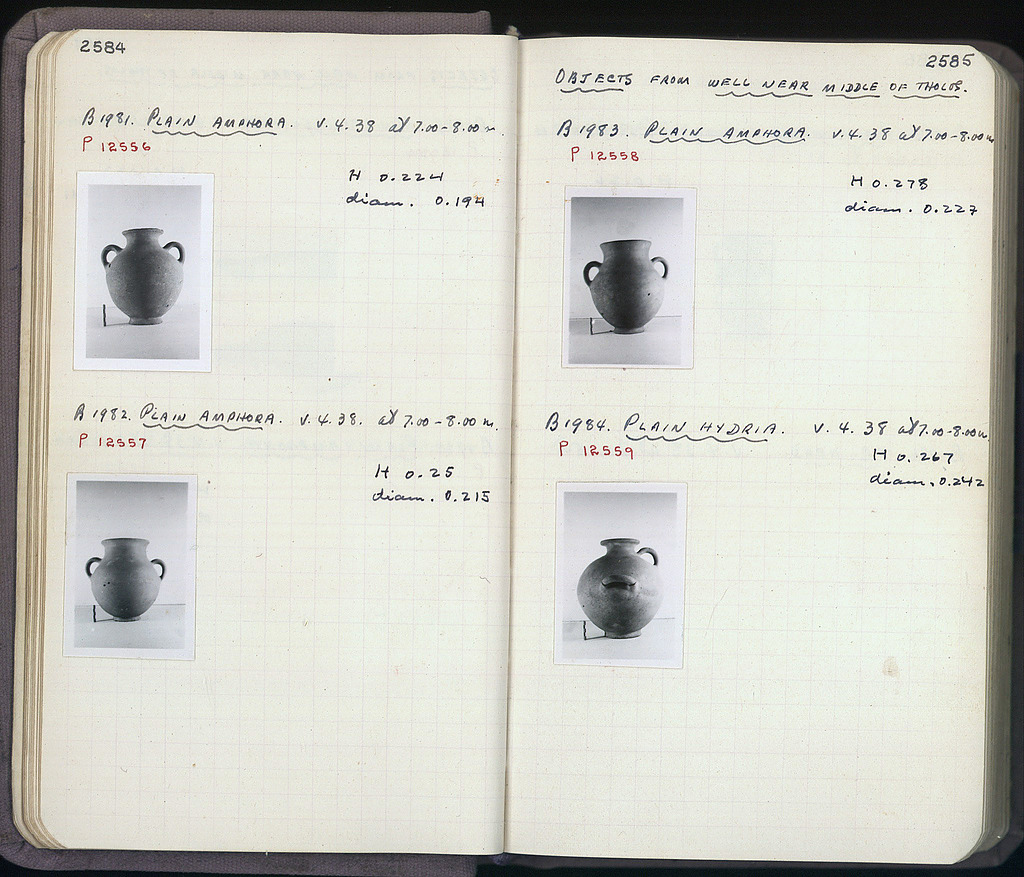 2584
B1981. PLAIN AMPHORA. V.4.38 at 7.00-8.00m.
P 12556
H 0.224
diam. 0.194
B1982. PLAIN AMPHORA. V.4.38. at 7.00-8.00m.
P 12557
H 0.25
diam. 0.215
2585
OBJECTS FROM WELL NEAR MIDDLE OF THOLOS.
B1983. PLAIN AMPHORA. V.4.38 at 7.00-8.00m
P 12558
H 0.278
diam. 0.227
B1984. PLAIN HYDRIA. V.4.38 at 7.00-8.00m.
P 12559
H 0.267
diam. 0.242